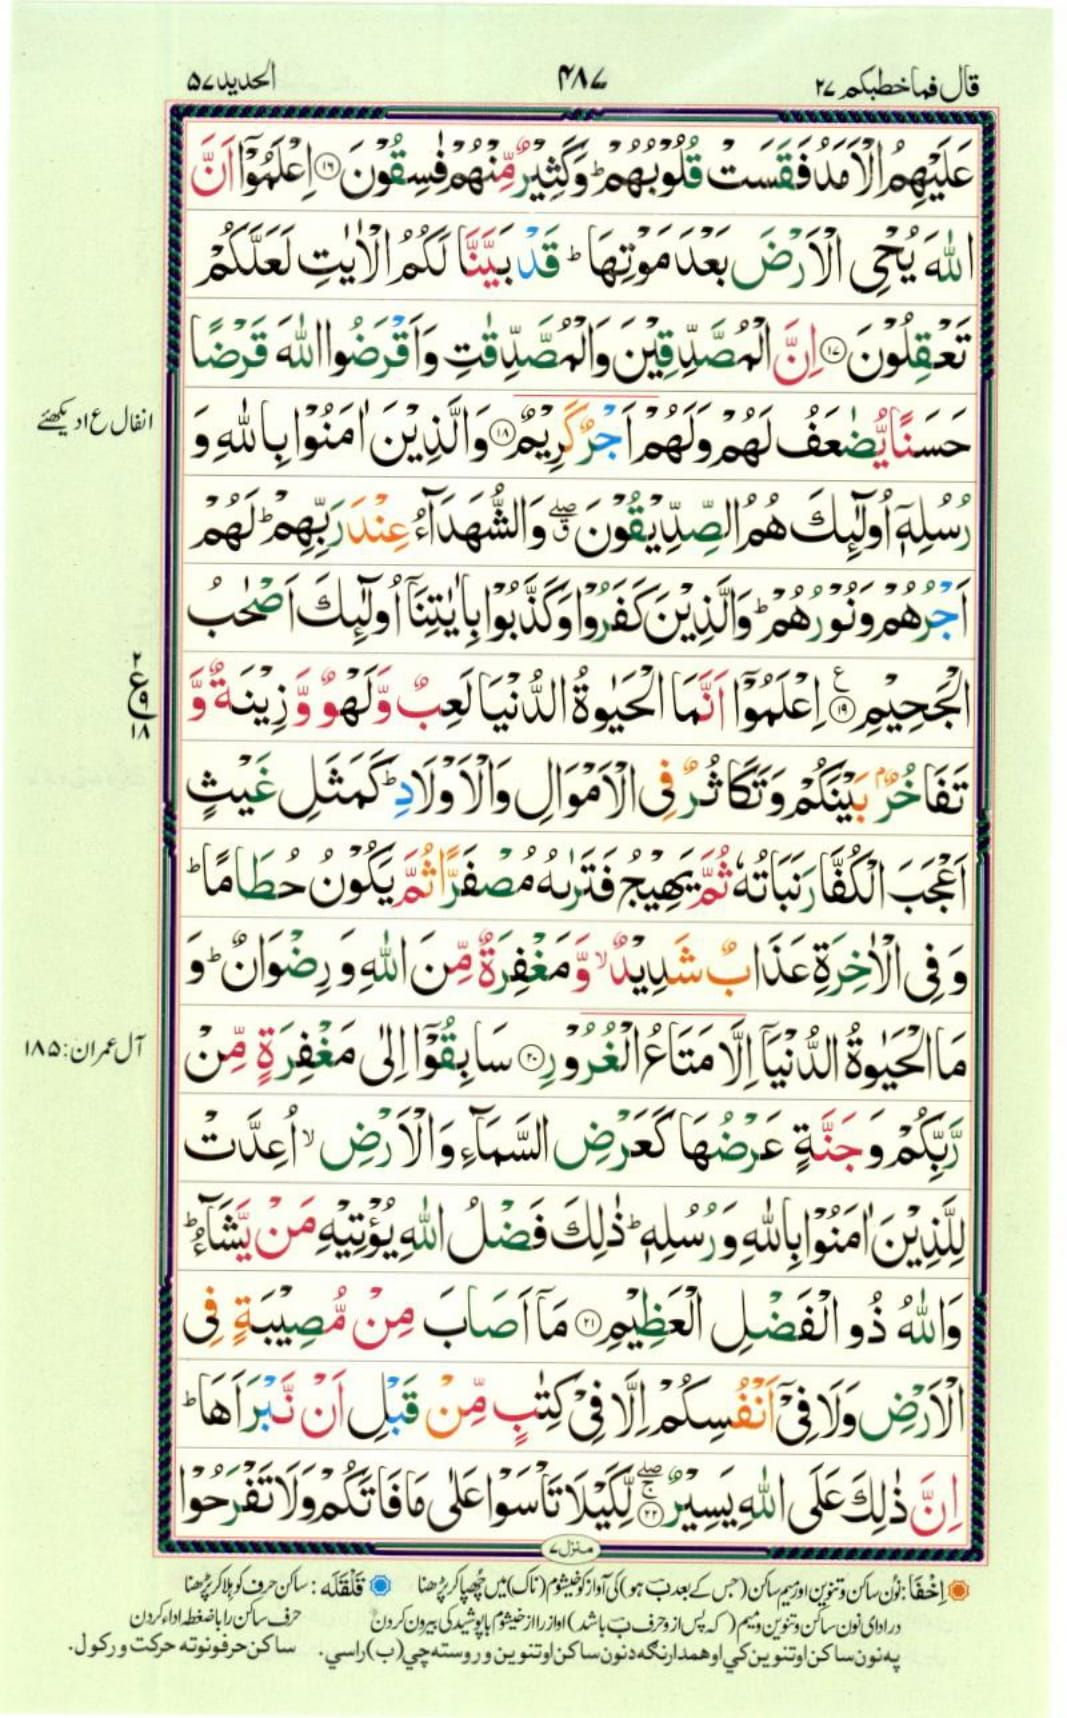 قال فما خطبکم ۲۷
۴۸۷
الحدید ۵۷
عَلَیۡہِمُ الۡاَمَدُ فَقَسَتۡ قُلُوۡبُہُمۡ ؕ وَکَثِیۡرٌ مِّنۡہُمۡ فٰسِقُوۡنَ ﴿۱۶﴾ اِعۡلَمُوۡۤا اَنَّ
اللّٰہَ یُحۡیِ الۡاَرۡضَ بَعۡدَ مَوۡتِہَا ؕ قَدۡ بَیَّنَّا لَکُمُ الۡاٰیٰتِ لَعَلَّکُمۡ
تَعۡقِلُوۡنَ ﴿۱۷﴾ اِنَّ الۡمُصَّدِّقِیۡنَ وَالۡمُصَّدِّقٰتِ وَاَقۡرَضُوا اللّٰہَ قَرۡضًا
حَسَنًا یُّضٰعَفُ لَہُمۡ وَلَہُمۡ اَجۡرٌ کَرِیۡمٌ ﴿۱۸﴾ وَالَّذِیۡنَ اٰمَنُوۡا بِاللّٰہِ وَ
انفال ع۱ دیکھئے
رُسُلِہٖۤ اُولٰٓئِکَ ہُمُ الصِّدِّیۡقُوۡنَ ٭ۖ وَالشُّہَدَآءُ عِنۡدَ رَبِّہِمۡ ؕ لَہُمۡ
اَجۡرُہُمۡ وَنُوۡرُہُمۡ ؕ وَالَّذِیۡنَ کَفَرُوۡا وَکَذَّبُوۡا بِاٰیٰتِنَاۤ اُولٰٓئِکَ اَصۡحٰبُ
الۡجَحِیۡمِ ﴿۱۹﴾ ع اِعۡلَمُوۡۤا اَنَّمَا الۡحَیٰوۃُ الدُّنۡیَا لَعِبٌ وَّلَہۡوٌ وَّزِیۡنَۃٌ وَّ
۲
ع ۹
۱۸
تَفَاخُرٌۢ بَیۡنَکُمۡ وَتَکَاثُرٌ فِی الۡاَمۡوَالِ وَالۡاَوۡلَادِ ؕ کَمَثَلِ غَیۡثٍ
اَعۡجَبَ الۡکُفَّارَ نَبَاتُہٗ ثُمَّ یَہِیۡجُ فَتَرٰىہُ مُصۡفَرًّا ثُمَّ یَکُوۡنُ حُطَامًا ؕ
وَفِی الۡاٰخِرَۃِ عَذَابٌ شَدِیۡدٌ ۙ وَّمَغۡفِرَۃٌ مِّنَ اللّٰہِ وَرِضۡوَانٌ ؕ وَ
مَا الۡحَیٰوۃُ الدُّنۡیَاۤ اِلَّا مَتَاعُ الۡغُرُوۡرِ ﴿۲۰﴾ سَابِقُوۡۤا اِلٰی مَغۡفِرَۃٍ مِّنۡ
آل عمران: ۱۸۵
رَّبِّکُمۡ وَجَنَّۃٍ عَرۡضُہَا کَعَرۡضِ السَّمَآءِ وَالۡاَرۡضِ ۙ اُعِدَّتۡ
لِلَّذِیۡنَ اٰمَنُوۡا بِاللّٰہِ وَرُسُلِہٖ ؕ ذٰلِکَ فَضۡلُ اللّٰہِ یُؤۡتِیۡہِ مَنۡ یَّشَآءُ ؕ
وَاللّٰہُ ذُو الۡفَضۡلِ الۡعَظِیۡمِ ﴿۲۱﴾ مَاۤ اَصَابَ مِنۡ مُّصِیۡبَۃٍ فِی
الۡاَرۡضِ وَلَا فِیۡۤ اَنۡفُسِکُمۡ اِلَّا فِیۡ کِتٰبٍ مِّنۡ قَبۡلِ اَنۡ نَّبۡرَاَہَا ؕ
اِنَّ ذٰلِکَ عَلَی اللّٰہِ یَسِیۡرٌ ﴿۲۲﴾ ۚۖ لِّکَیۡلَا تَاۡسَوۡا عَلٰی مَا فَاتَکُمۡ وَلَا تَفۡرَحُوۡا
منزل ۷
اِخْفَا: نُون ساکن و تنوین اور میم ساکن (جس کے بعد بَ ہو) کی آواز کو خیشوم (ناک) میں چُھپا کر پڑھنا قَلْقَلَه: ساکن حرف کو ہلا کر پڑھنا
در ادای نون ساکن و تنوین و میم (که پس از و حرف بَ باشد) آواز را از خیشوم با پوشیدگی بیرون کردن حرف ساکن را با ضغطه اداء کردن
په نون ساکن او تنوین کي او همدارنګه د نون ساکن او تنوین وروسته چي (ب) راسي. ساکن حرفونو ته حرکت ورکول.